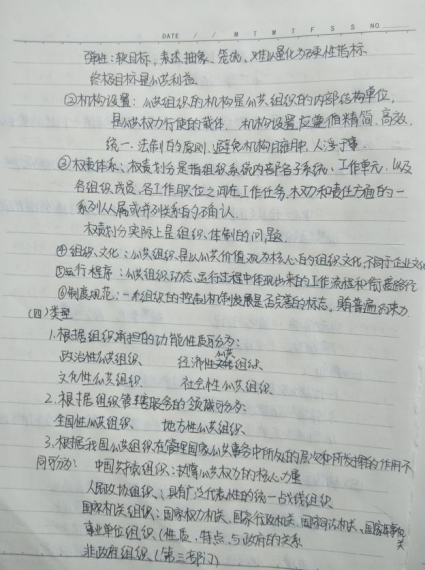 DATE / / M T W T F S S NO.
弹性:软目标,表述抽象、笼统、难以量化为硬性指标
终极目标是公共利益
②机构设置:公共组织的机构是公共组织的内部结构单位,
是公共权力行使的载体。机构设置应遵循精简、高效、
统一、法制的原则,避免机构臃肿、人浮于事
③权责体系:权责划分是指组织系统内部各子系统、工作单元、以及
各组织成员、各工作职位之间在工作任务、权力和责任方面的一
系列从属或并列关系的确认。
权责划分实际上是组织体制的问题。
④组织文化:公共组织是以公共价值观为核心的组织文化,不同于企业文化
⑤运行程序:公共组织动态运行过程中体现出来的工作流程和衔接路径
⑥制度规范:一种组织的控制和发展是否完善的标志,具有普遍约束力
(四)类型
1.根据组织承担的功能性质可分为:
政治性公共组织 经济性公共组织
文化性公共组织 社会性公共组织
2.根据组织管辖服务的领域可分为:
全国性公共组织 地方性公共组织
3.根据我国公共组织在管理国家公共事务中所处的层次和所发挥的作用不
同可分为: 中国共产党组织:执掌公共权力的核心力量
人民政协组织:具有广泛代表性的统一战线组织
国家机关组织:国家权力机关、国家行政机关、国家司法机关、国家军事机关
事业单位组织(性质、特点、与政府的关系
非政府组织(第三部门)